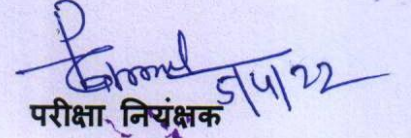 5/4/22
परीक्षा नियंत्रक